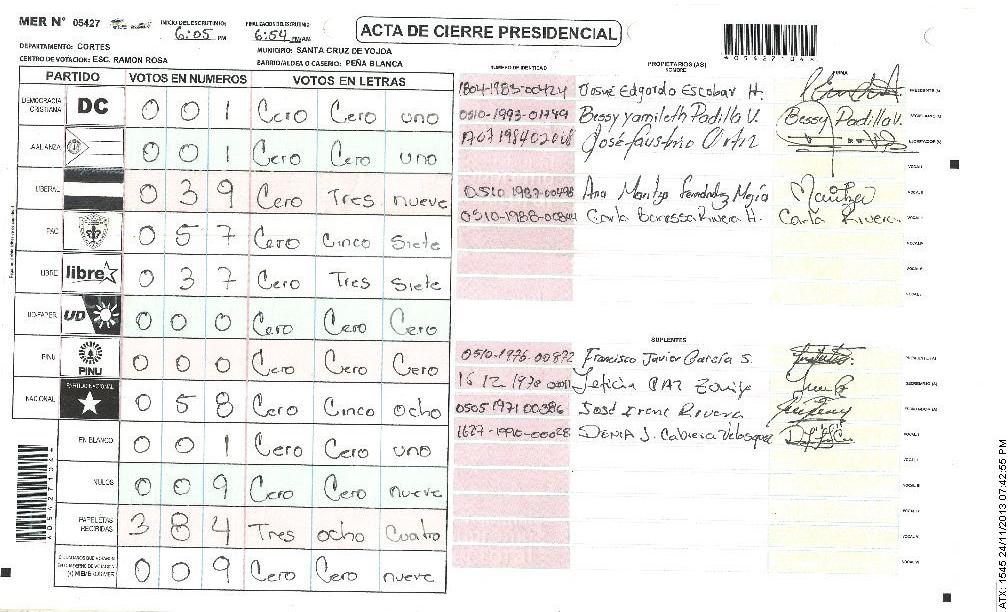 MER N° 05427
INICIO DEL ESCRUTINIO: 6:05 PM
FINALIZACION DEL ESCRUTINIO: 6:54 PM/AM
ACTA DE CIERRE PRESIDENCIAL
*05427104*
DEPARTAMENTO: CORTES
MUNICIPIO: SANTA CRUZ DE YOJOA
CENTRO DE VOTACION: ESC. RAMON ROSA
BARRIO/ALDEA O CASERIO: PEÑA BLANCA
PARTIDO VOTOS EN NUMEROS VOTOS EN LETRAS
DEMOCRACIA CRISTIANA DC 0 0 1 Cero Cero uno
ALIANZA 0 0 1 Cero Cero uno
LIBERAL 0 3 9 Cero Tres nueve
PAC 0 5 7 Cero Cinco Siete
LIBRE libre 0 3 7 Cero Tres Siete
UD-FAPER UD 0 0 0 Cero Cero Cero
PINU PINU 0 0 0 Cero Cero Cero
NACIONAL PARTIDO NACIONAL 0 5 8 Cero Cinco ocho
EN BLANCO 0 0 1 Cero Cero uno
NULOS 0 0 9 Cero Cero nueve
PAPELETAS RECIBIDAS 3 8 4 Tres ocho Cuatro
0 0 9 Cero Cero nueve
NUMERO DE IDENTIDAD PROPIETARIOS (AS) NOMBRE FIRMA
1804-1983-00424 Josué Edgardo Escobar H. PRESIDENTE (A)
0510-1993-01749 Bessy Yamileth Padilla V. Bessy Padilla V. SECRETARIO (A)
José Faustino Ortiz ESCRUTADOR (A)
VOCAL I
0510 1987-00498 Ana Maritza Fernández Mejía Maritza VOCAL II
0510-1988-00844 Carla Baressa Rivera H. Carla Rivera VOCAL III
VOCAL IV
VOCAL V
SUPLENTES
0510-1976-00872 Francisco Javier García S. PRESIDENTE (A)
Leticia SECRETARIO (A)
0505 1971 00386 José Irene Rivera ESCRUTADOR (A)
1627-1990-00028 DENIA J. Cabrera Velasquez VOCAL I
VOCAL II
VOCAL III
VOCAL IV
VOCAL V
*05427104*
ATX: 1545 24/11/2013 07:42:55 PM